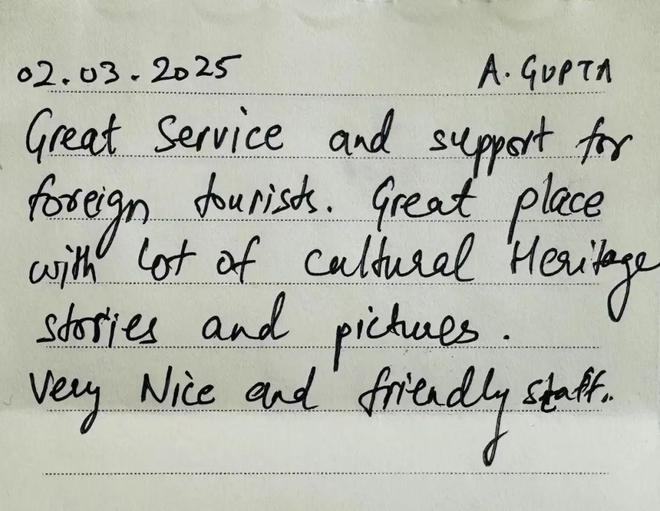 02.03.2025 A. GUPTA
Great Service and support for
foreign tourists. Great place
with lot of cultural Heritage
stories and pictures.
Very Nice and friendly staff.